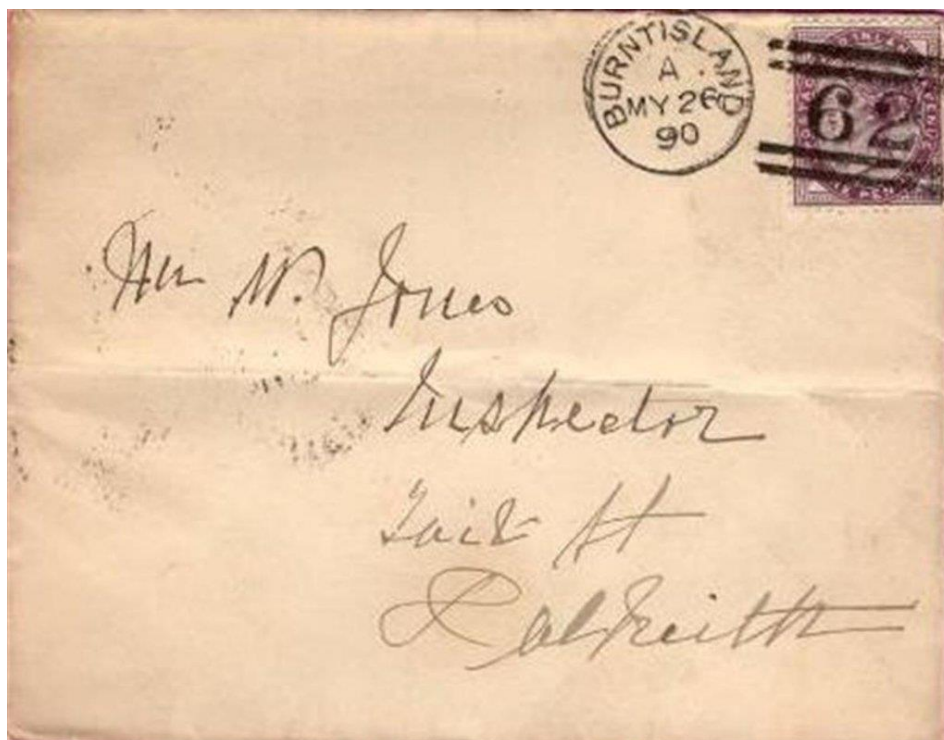 BURNTISLAND
A
MY 26
90
62
INLAND
Mr W. Jones
Inspector
Tait St
Dalkeith